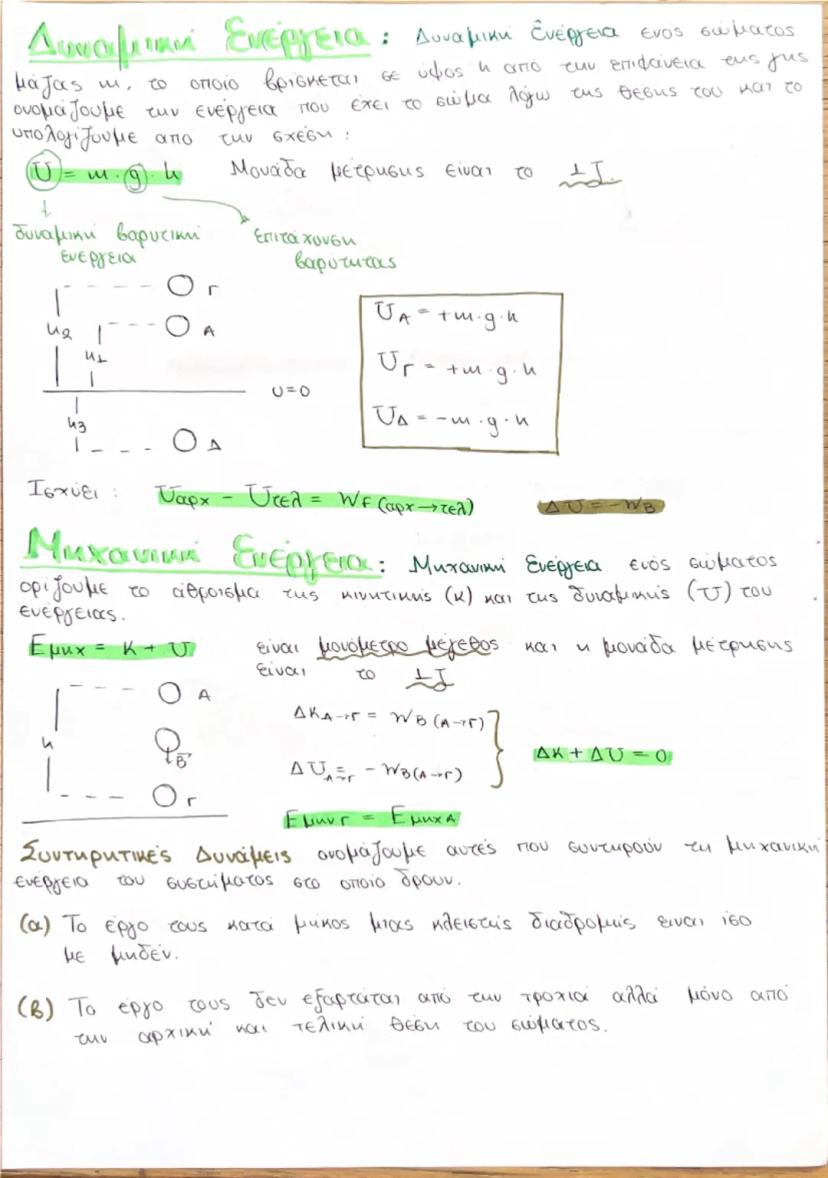 Δυναμική Ενέργεια: Δυναμική Ενέργεια ενός σώματος
μάζας m, το οποίο βρίσκεται σε ύψος h από την επιφάνεια της γης
ονομάζουμε την ενέργεια που έχει το σώμα λόγω της θέσης του και το
υπολογίζουμε απο την σχέση:
U = m·g·h Μονάδα μέτρησης είναι το 1J.
δυναμική βαρυτική επιτάχυνση
ενέργεια βαρύτητας
Γ
h2 A
h1
U=0
h3
Δ
UA = +m·g·h
UΓ = +m·g·h
UΔ = -m·g·h
Ισχύει: Uαρχ - Uτελ = WF(αρχ→τελ) ΔU = -WB
Μηχανική Ενέργεια: Μηχανική Ενέργεια ενός σώματος
ορίζουμε το άθροισμα της κινητικής (Κ) και της δυναμικής (U) του
ενέργειας.
Εμηχ = Κ + U είναι μονόμετρο μέγεθος και η μονάδα μέτρησης
είναι το 1J
A
h
B
Γ
ΔΚΑ→Γ = WB(A→Γ)
ΔUA→Γ = -WB(A→Γ)
ΔΚ + ΔU = 0
Εμηχ Γ = Εμηχ Α
Συντηρητικές Δυνάμεις ονομάζουμε αυτές που συντηρούν τη μηχανική
ενέργεια του συστήματος στο οποίο δρουν.
(α) Το έργο τους κατά μήκος μιας κλειστής διαδρομής είναι ίσο
με μηδέν.
(β) Το έργο τους δεν εξαρτάται από την τροχιά αλλά μόνο από
την αρχική και τελική θέση του σώματος.